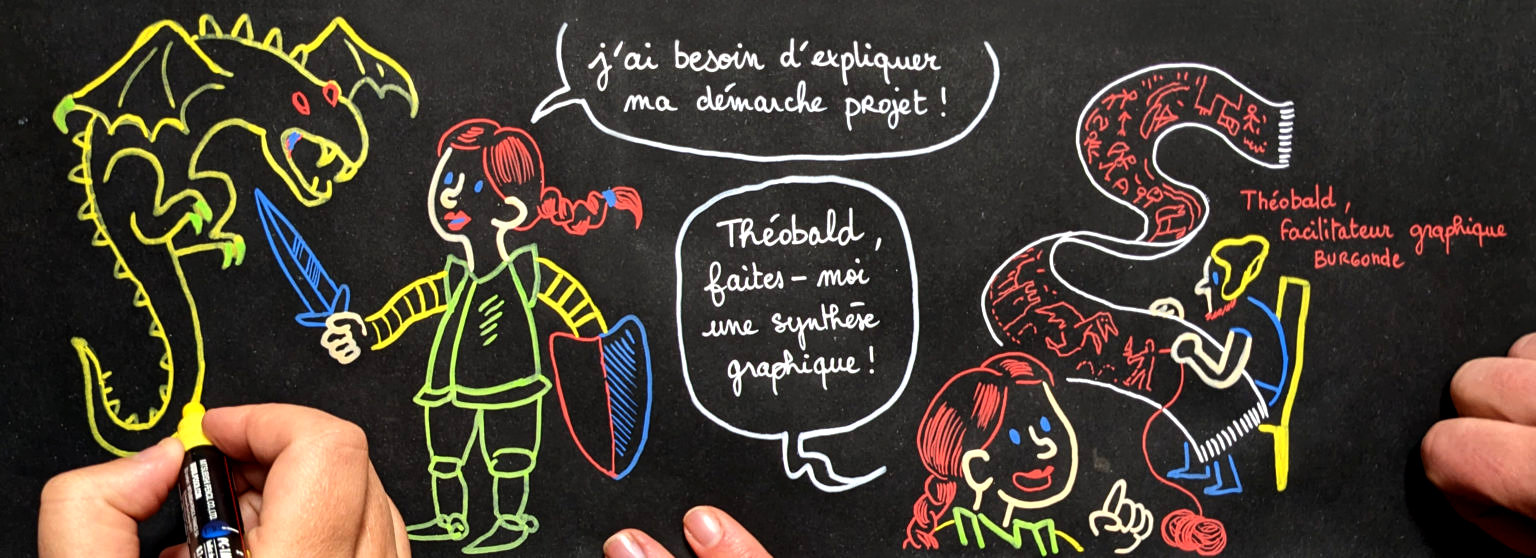 j'ai besoin d'expliquer
ma démarche projet !
Théobald,
faites-moi
une synthèse
graphique !
Théobald,
facilitateur graphique
BURGONDE